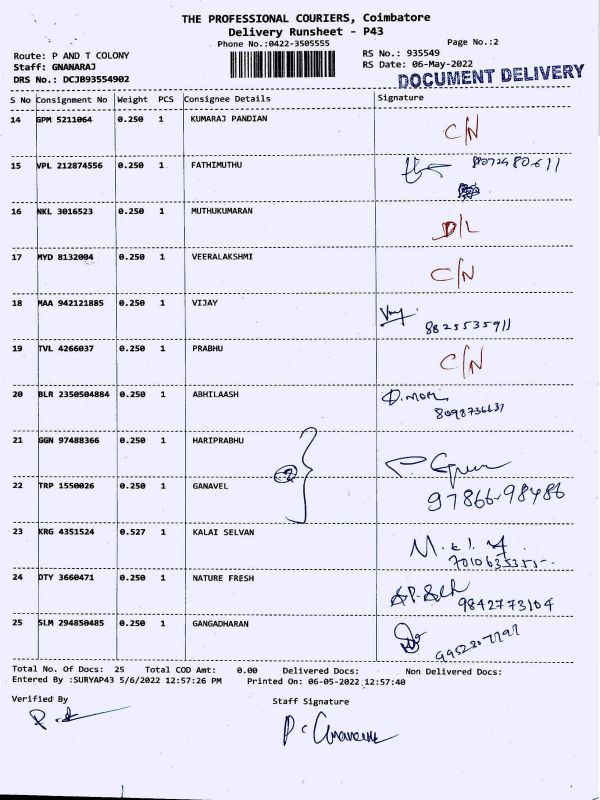 THE PROFESSIONAL COURIERS, Coimbatore
Delivery Runsheet - P43
Phone No.:0422-3505555
Page No.:2
Route: P AND T COLONY
RS No.: 935549
Staff: GNANARAJ
RS Date: 06-May-2022
DRS No.: DCJB93554902
DOCUMENT DELIVERY
S No Consignment No Weight PCS Consignee Details Signature
14 GPM 5211064 0.250 1 KUMARAJ PANDIAN C/N
15 VPL 212874556 0.250 1 FATHIMUTHU
16 NKL 3016523 0.250 1 MUTHUKUMARAN D/L
17 MYD 8132004 0.250 1 VEERALAKSHMI C/N
18 MAA 942121885 0.250 1 VIJAY 8825535911
19 TVL 4266037 0.250 1 PRABHU C/N
20 BLR 2350504884 0.250 1 ABHILAASH 8098736631
21 GGN 97488366 0.250 1 HARIPRABHU
22 TRP 1550026 0.250 1 GANAVEL 97866-98486
23 KRG 4351524 0.527 1 KALAI SELVAN
24 OTY 3660471 0.250 1 NATURE FRESH 9842773104
25 SLM 294850485 0.250 1 GANGADHARAN
Total No. Of Docs: 25 Total COD Amt: 0.00 Delivered Docs: Non Delivered Docs:
Entered By :SURYAP43 5/6/2022 12:57:26 PM Printed On: 06-05-2022 12:57:40
Verified By
Staff Signature